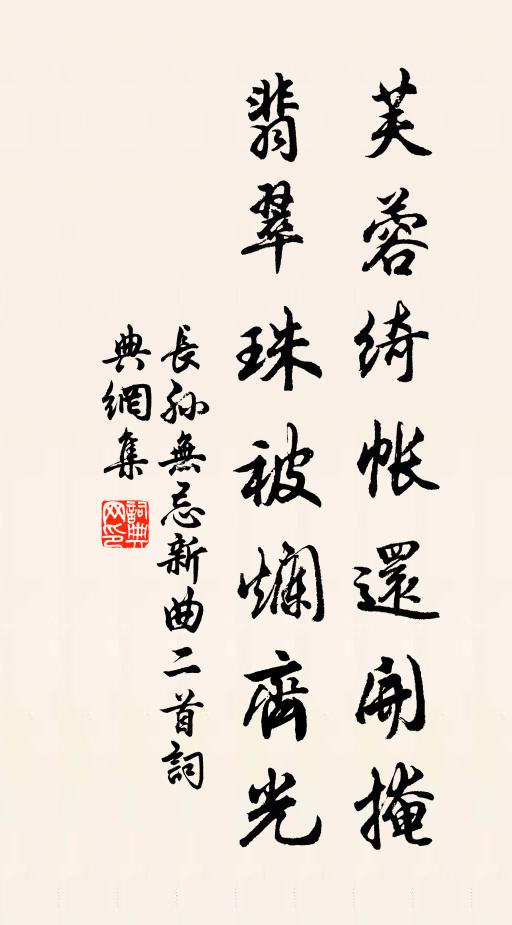 芙蓉綺帳還開掩
翡翠珠被爛齊光
長孙無忌新曲二首詞
典網集
詞典
网印